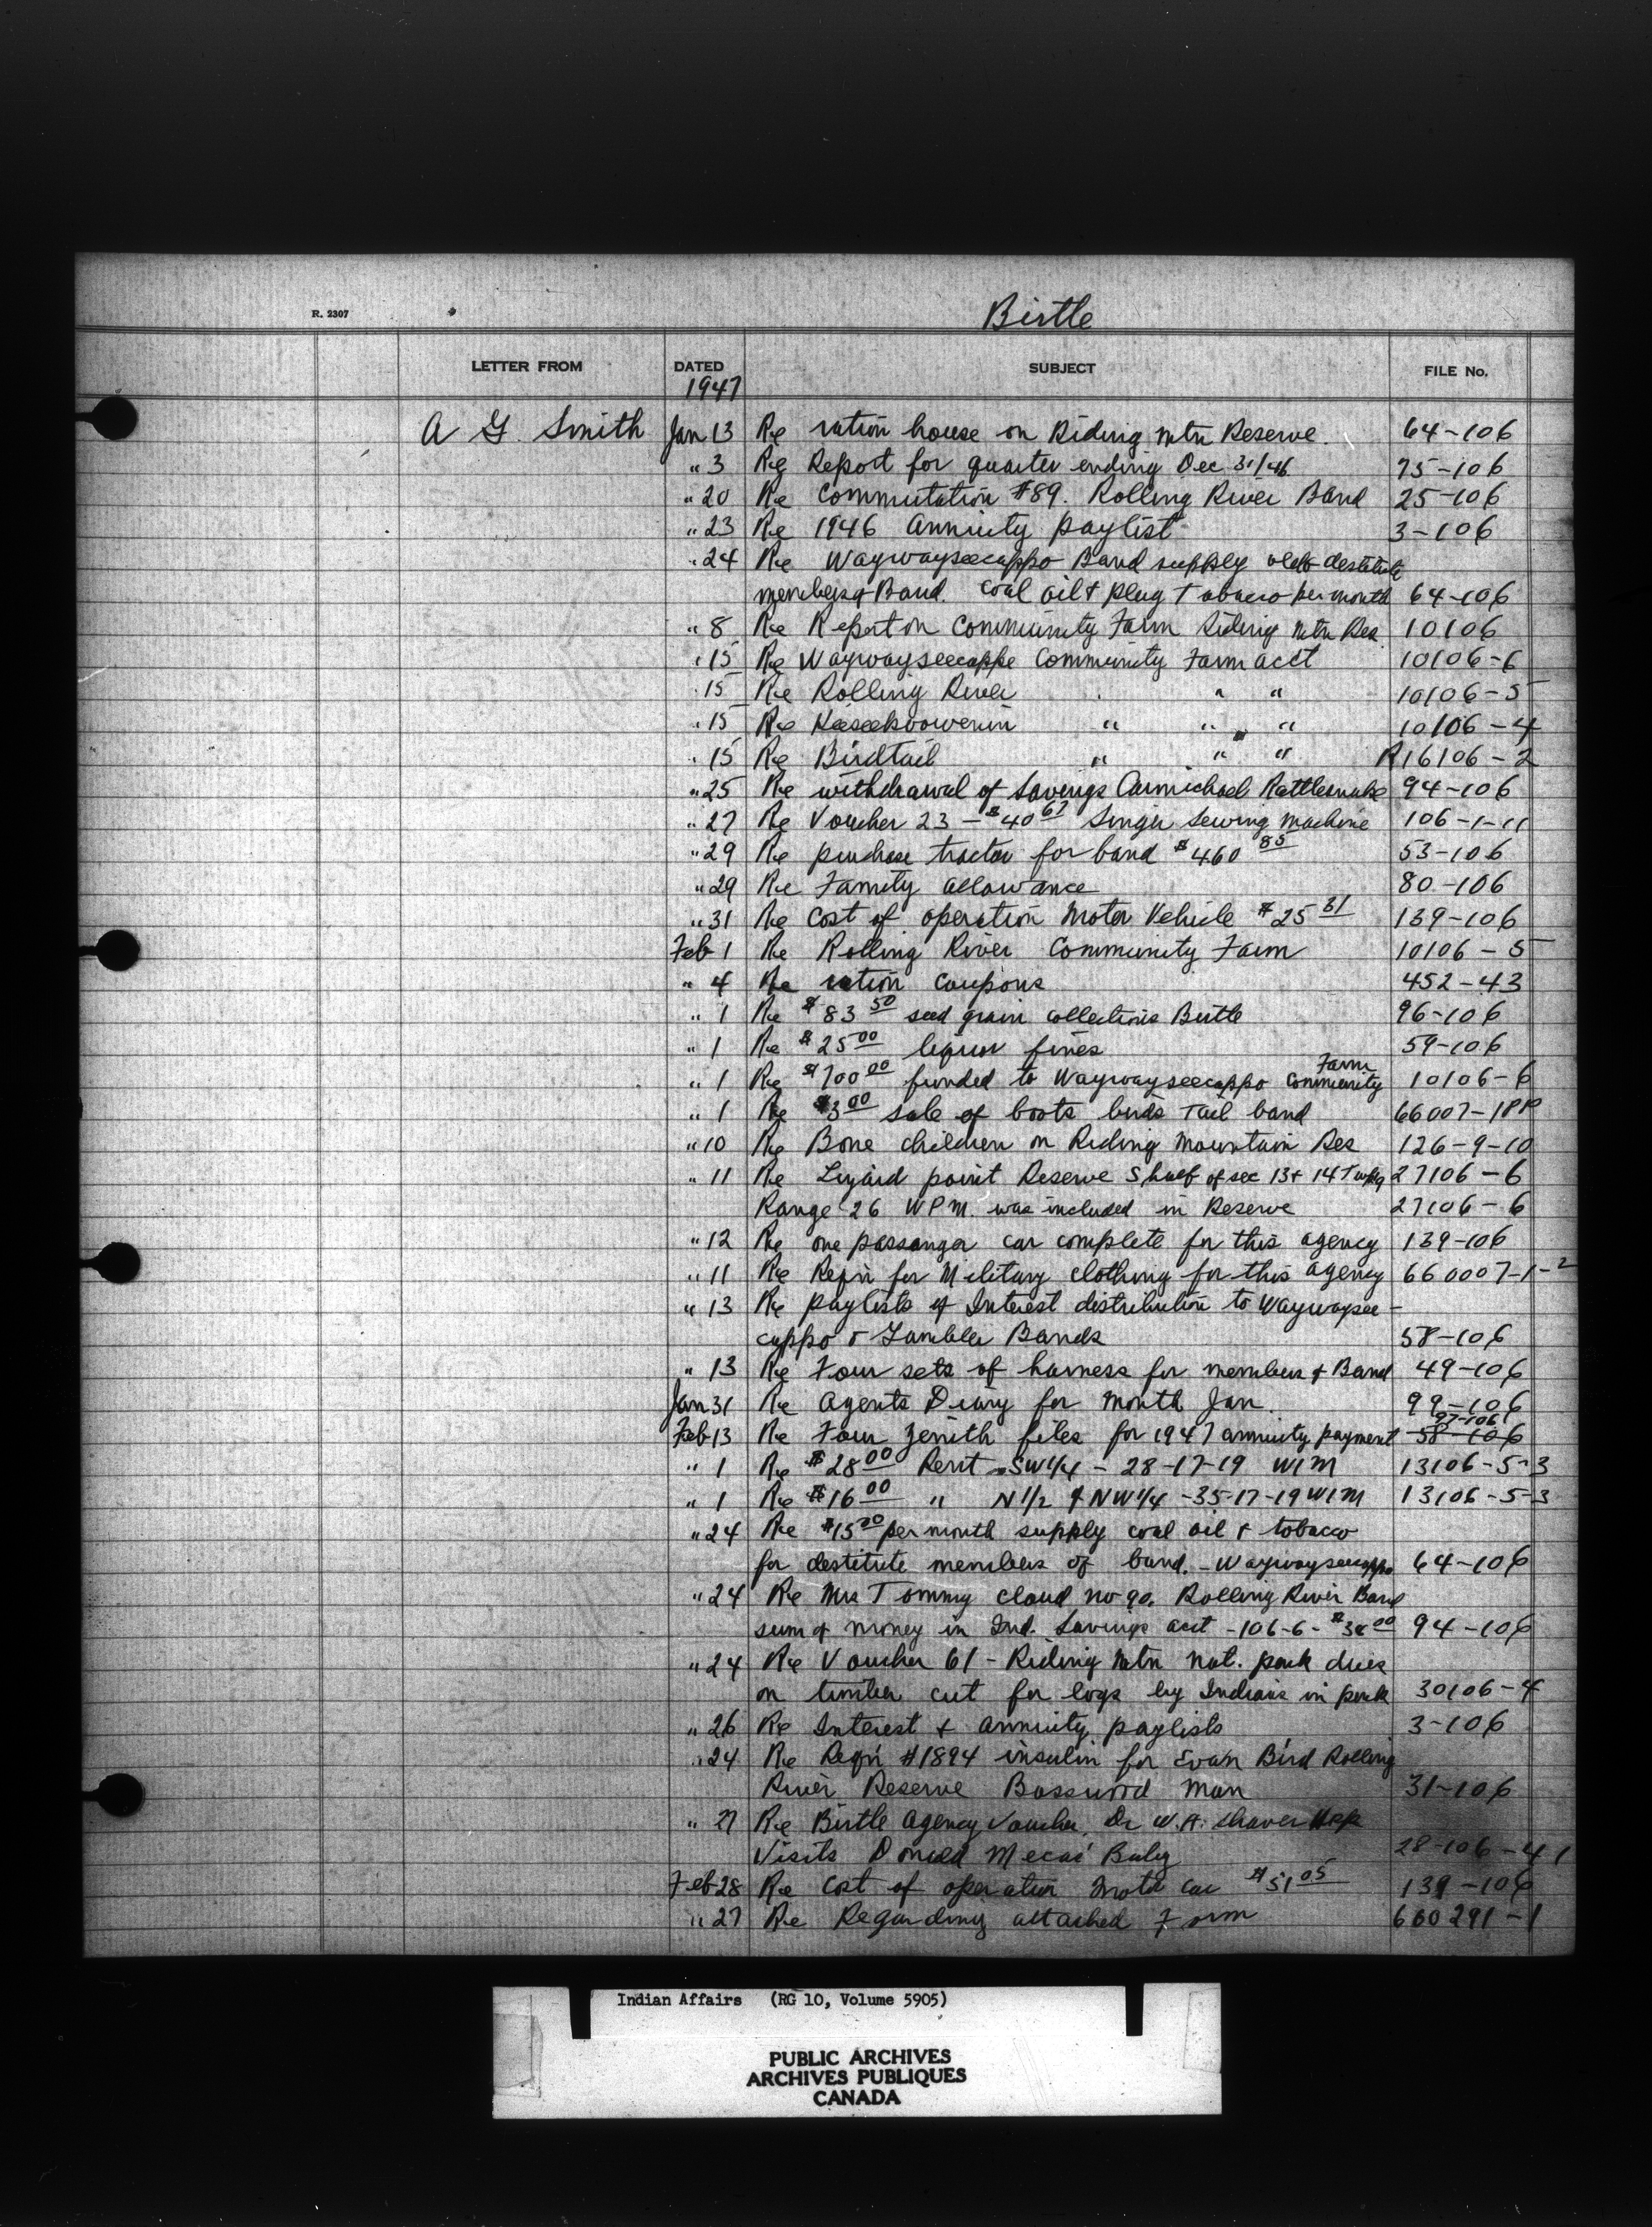 R. 2307
Birtle
LETTER FROM DATED SUBJECT FILE No.
1947
A G. Smith Jan 13 Re ration house on Riding Mtn Reserve. 64-106
" 3 Re Report for quarter ending Dec 31/46 75-106
" 20 Re Commutation #89. Rolling River Band 25-106
" 23 Re 1946 Annuity paylist 3-106
" 24 Re Waywayseecappo Band supply destitute
members of Band. Coal oil & plug Tobacco per month 64-106
" 8 Re Report on Community Farm Riding Mtn Res 10106
" 15 Re Waywayseecappo Community Farm acct 10106-6
" 15 Re Rolling River " " " 10106-5
" 15 Re Keeseekoowenin " " " 10106-4
" 15 Re Birdtail " " " R16106-2
" 25 Re withdrawal of Savings Carmichael Rattlesnake 94-106
" 27 Re Voucher 23 - $40 67 Singer Sewing Machine 106-1-11
" 29 Re purchase tractor for band $460 85 53-106
" 29 Re Family Allowance 80-106
" 31 Re Cost of operation Motor Vehicle $25 31 139-106
Feb 1 Re Rolling River Community Farm 10106-5
" 4 Re ration coupons 452-43
" 1 Re $83 50 seed grain collections Birtle 96-106
" 1 Re $25 00 liquor fines 59-106
" 1 Re $700 00 funded to Waywayseecappo Community Farm 10106-6
" 1 Re $3 00 sale of boots birds Tail band 66007-1PP
" 10 Re Bone children on Riding Mountain Res 126-9-10
" 11 Re Lizard point Reserve S half of sec 13 & 14 Twp 19 27106-6
Range 26 WPM. was included in Reserve 27106-6
" 12 Re one passanger car complete for this agency 139-106
" 11 Re Reqn for Military clothing for this agency 660007-1-2
" 13 Re paylists of Interest distribution to Waywaysee-
cappo & Gambler Bands 58-106
" 13 Re Four sets of harness for members of Band 49-106
Jan 31 Re Agents Diary for Month Jan. 99-106
Feb 13 Re Four Zenith files for 1947 annuity payment 58-106 97-106
" 1 Re $28 00 Rent SW1/4 - 28-17-19 W1M 13106-5-3
" 1 Re $16 00 " N 1/2 of NW1/4 - 35-17-19 W1M 13106-5-3
" 24 Re $15 00 per month supply coal oil & tobacco
for destitute members of band. - Waywayseecappo 64-106
" 24 Re Mrs Tommy Cloud no 90. Rolling River Band
sum of money in Ind. Savings acct - 106-6 - $38 00 94-106
" 24 Re Voucher 61 - Riding Mtn nat. park dues
on timber cut for logs by Indians in park 30106-4
" 26 Re Interest & annuity paylists 3-106
" 24 Re Reqn #1894 insulin for Evan Bird Rolling
River Reserve Basswood Man 31-106
" 27 Re Birtle Agency Voucher. Dr W.A. Shaver
Visits Donald Mecas' Baby 28-106-41
Feb 28 Re Cost of operation Motor car $51 05 139-106
" 27 Re Regarding attached Form 660291-1
Indian Affairs (RG 10, Volume 5905)
PUBLIC ARCHIVES
ARCHIVES PUBLIQUES
CANADA